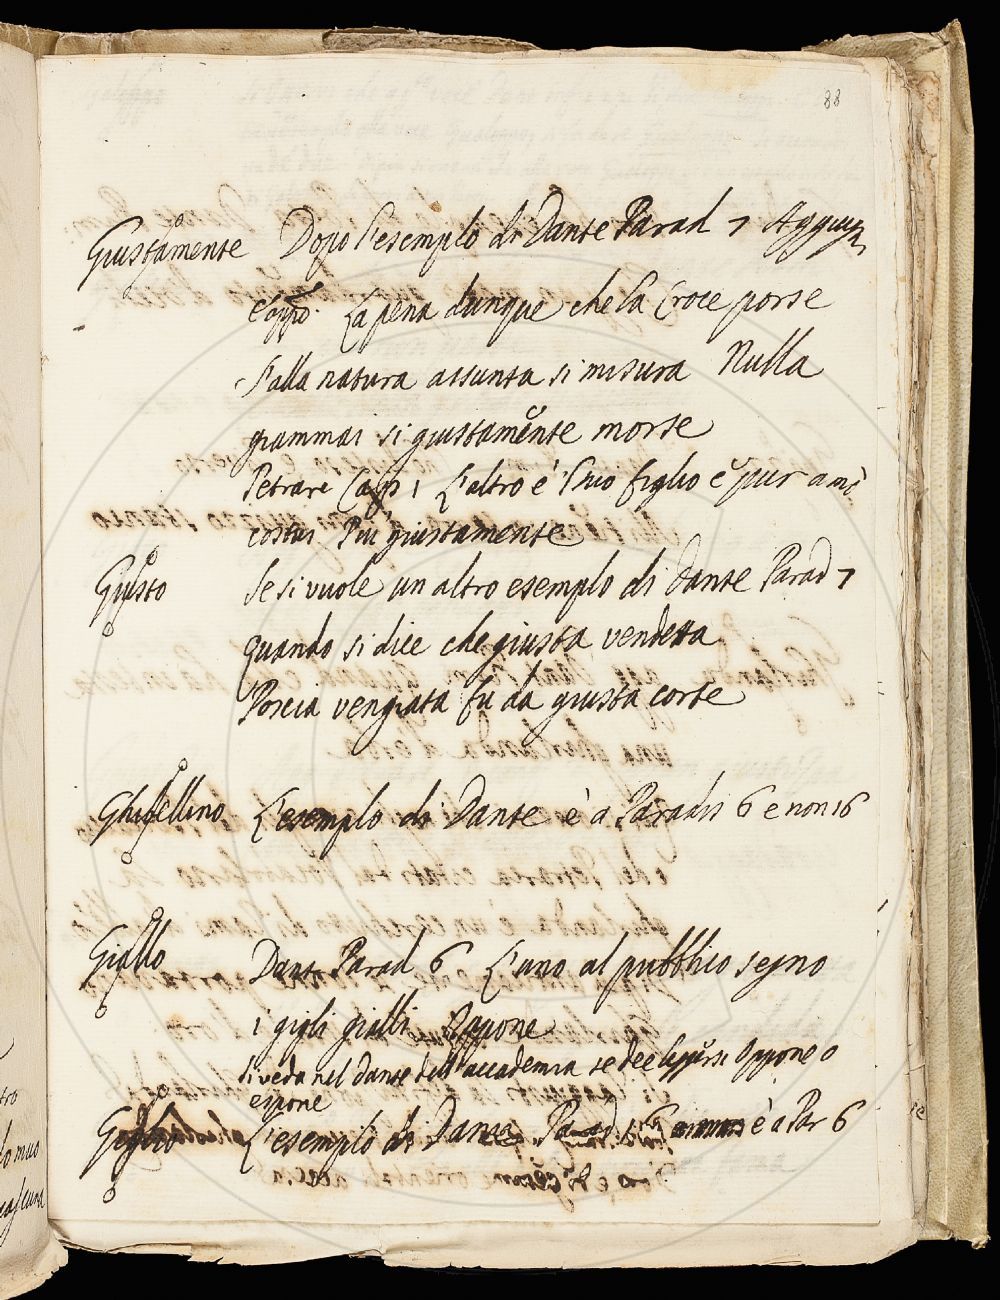 88
Giustamente Dopo l'esempio di Dante Parad 7 Aggiugn
La pena dunque che la Croce porse
S'alla natura assunta si misura Nulla
giammai si giustamente morse
Petrarc L'altro è 'l suo figlio e pur a mē
costui Più giustamente
Giusto Se si vuole un altro esempio di Dante Parad 7
quando si dice che giusta vendetta
Poscia vengiata fu da giusta corte
Ghibellino L'esempio di Dante è a Paradis 6 e non 16
Giallo Dante Parad 6 L'uno al pubblico segno
i gigli gialli oppone
si veda nel Dante dell'accademia se dee leggersi oppone o
espone
L'esempio di Dante Parad 16 è a Par 6